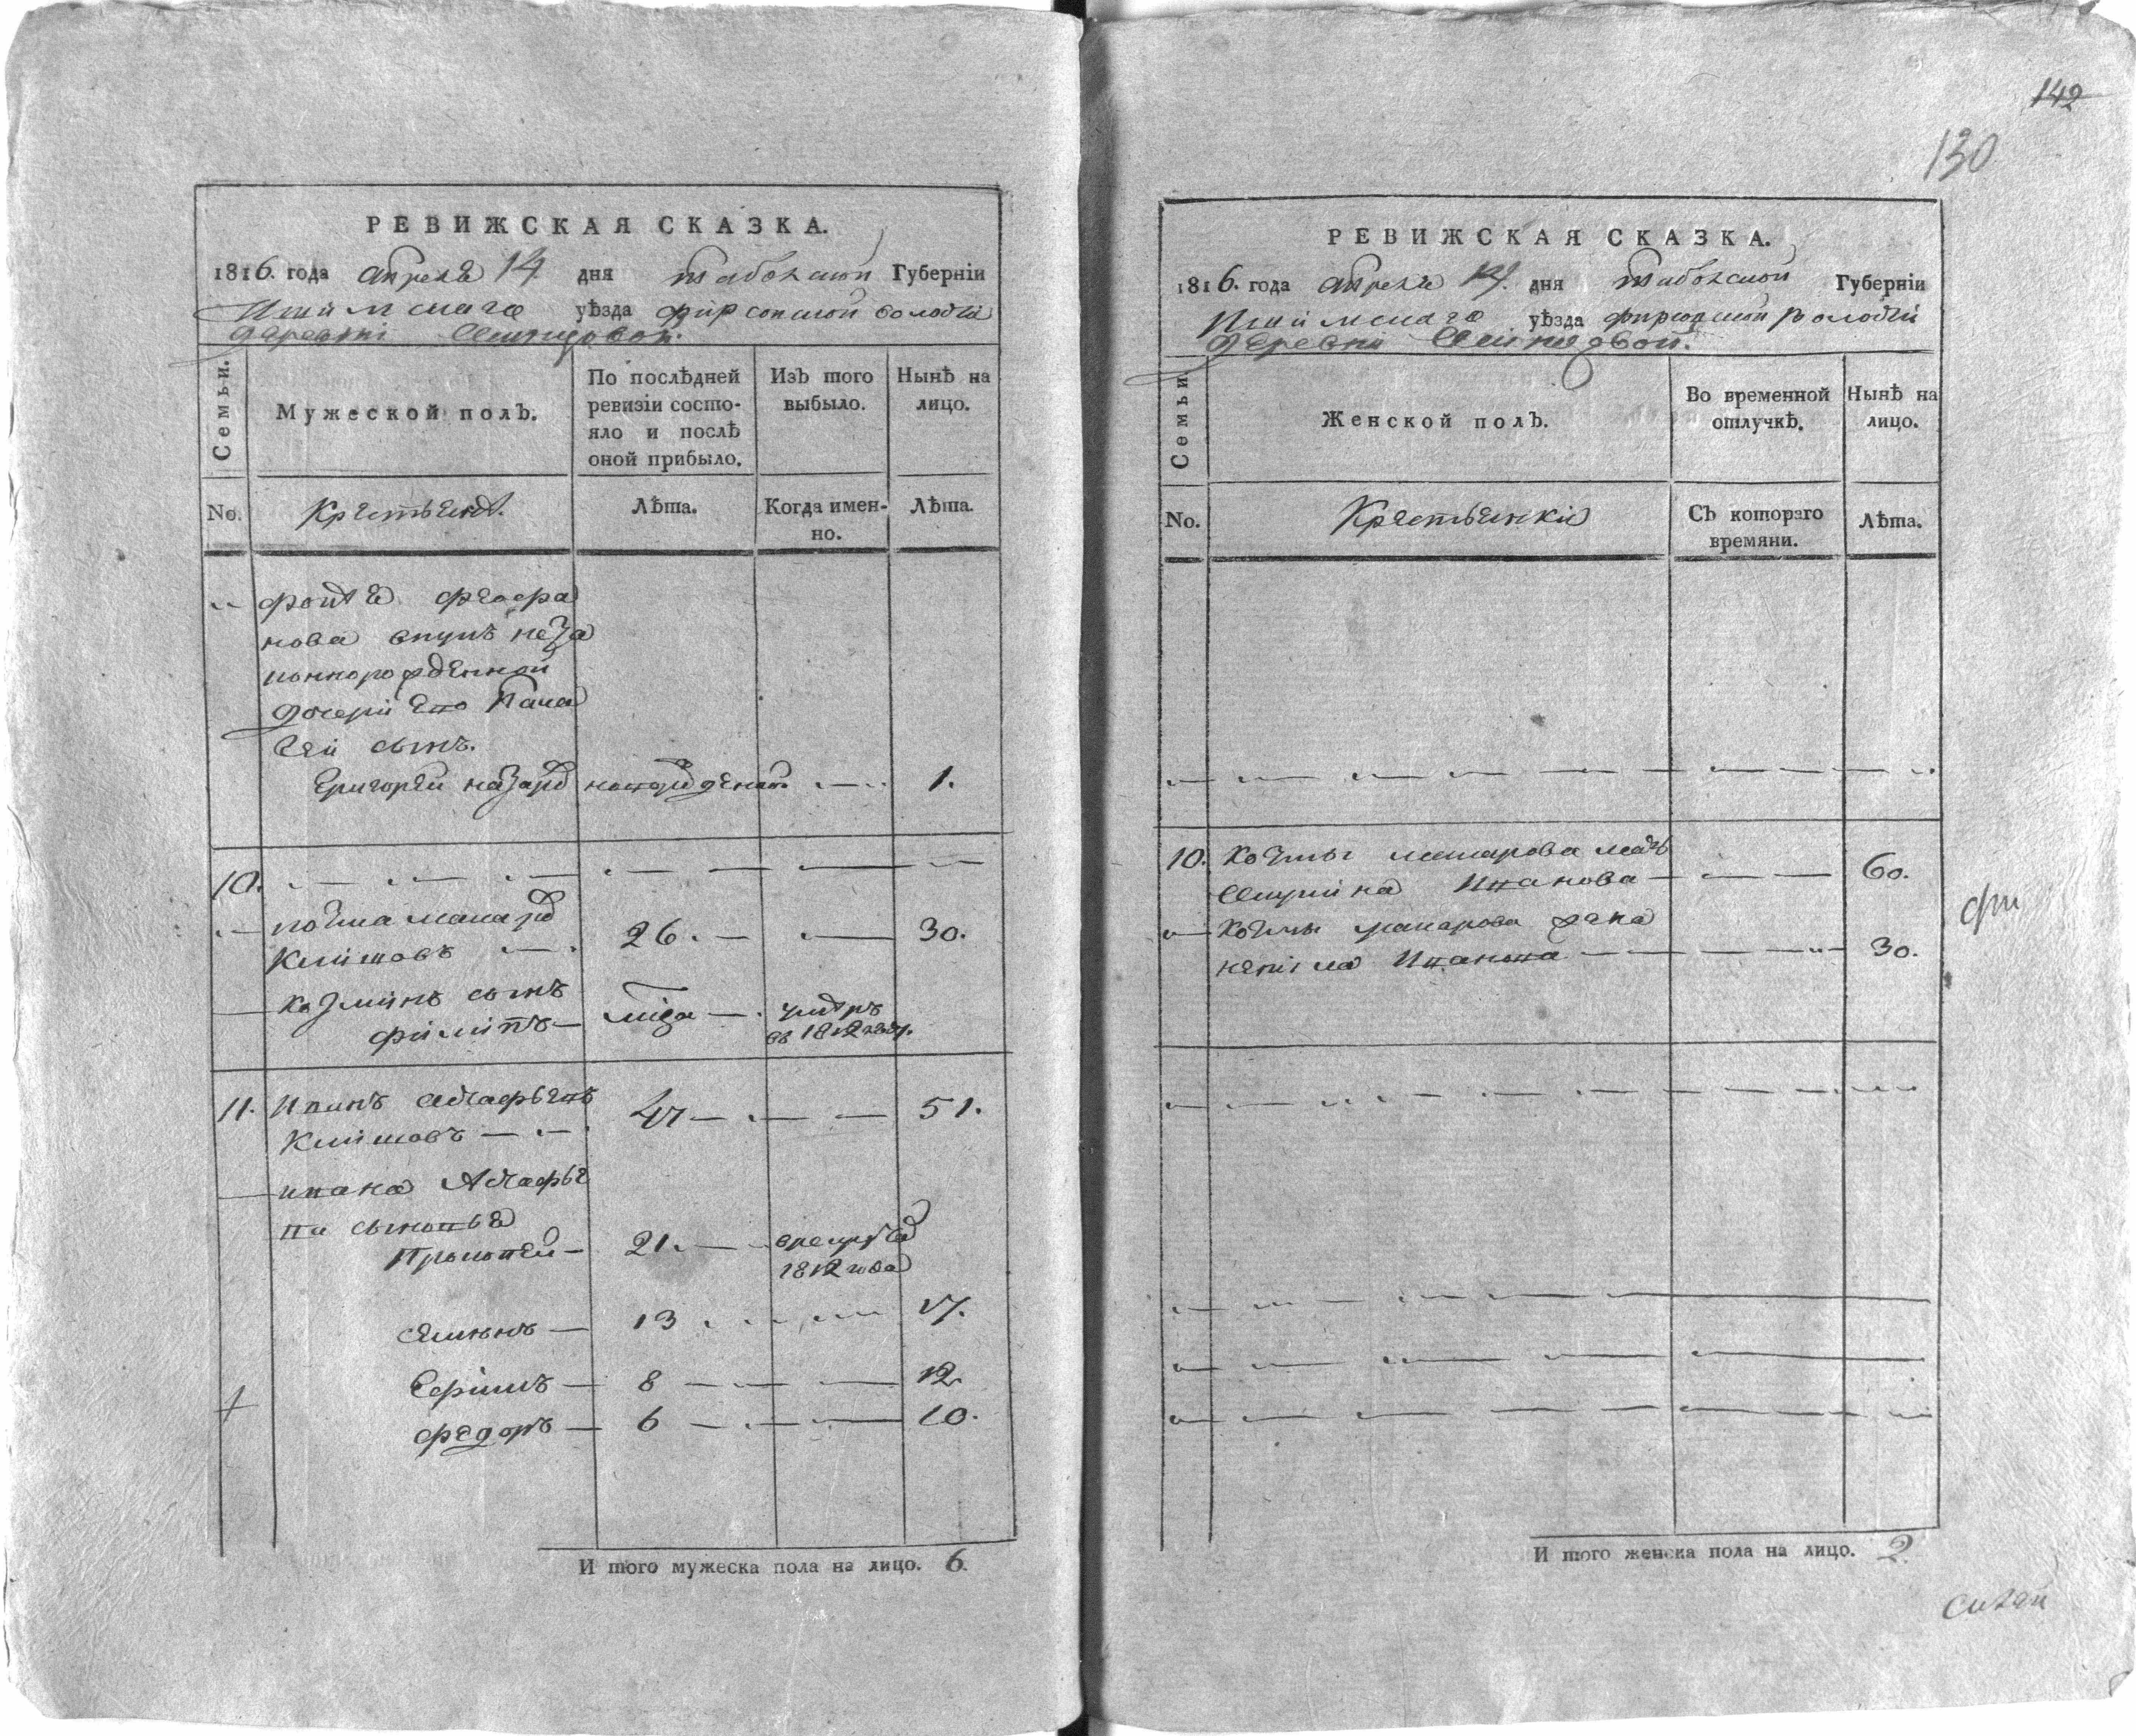 142
130
РЕВИЖСКАЯ СКАЗКА.
1816. года апреля 14 дня тобольской Губерніи
Ишимскаго уѣзда фирсовской волости
деревни
Семьи.
Мужеской полЪ.
По послѣдней ревизіи состо-яло и послѣ оной прибыло.
ИзЪ того выбыло.
НынѢ на лицо.
No.
Крестьяня.
ЛѢта.
Когда имен-но.
ЛѢта.
фотѣя феофа
нова внукъ неза
коннорожденной
дочери его
сын.
Григорей назадъ новорожденной 1.
10.
козма макаровъ
Климовъ 26. 30.
козминъ сынъ
филипъ умре
въ 1812 году.
11. Иванъ Астафьевъ
Климовъ 47 51.
ивана Астафье
ва сыновья
Прокопей 21. врекруты
1812 года
семенъ 13 17.
Ефимъ 8 12
федоръ 6 10.
И того мужеска пола на лицо. 6.
РЕВИЖСКАЯ СКАЗКА.
1816. года апреля 14. дня тобольской Губерніи
Ишимскаго уѣзда фирсовской волости
деревни
Семьи
Женской полЪ.
Во временной отлучкѢ.
НынѢ на лицо.
No.
Крестьянки
СЪ котораго времяни.
ЛѢта.
10. козмы макарова мать
Иванова 60.
козмы макарова жена
Иванова 30.
И того женска пола на лицо. 2.